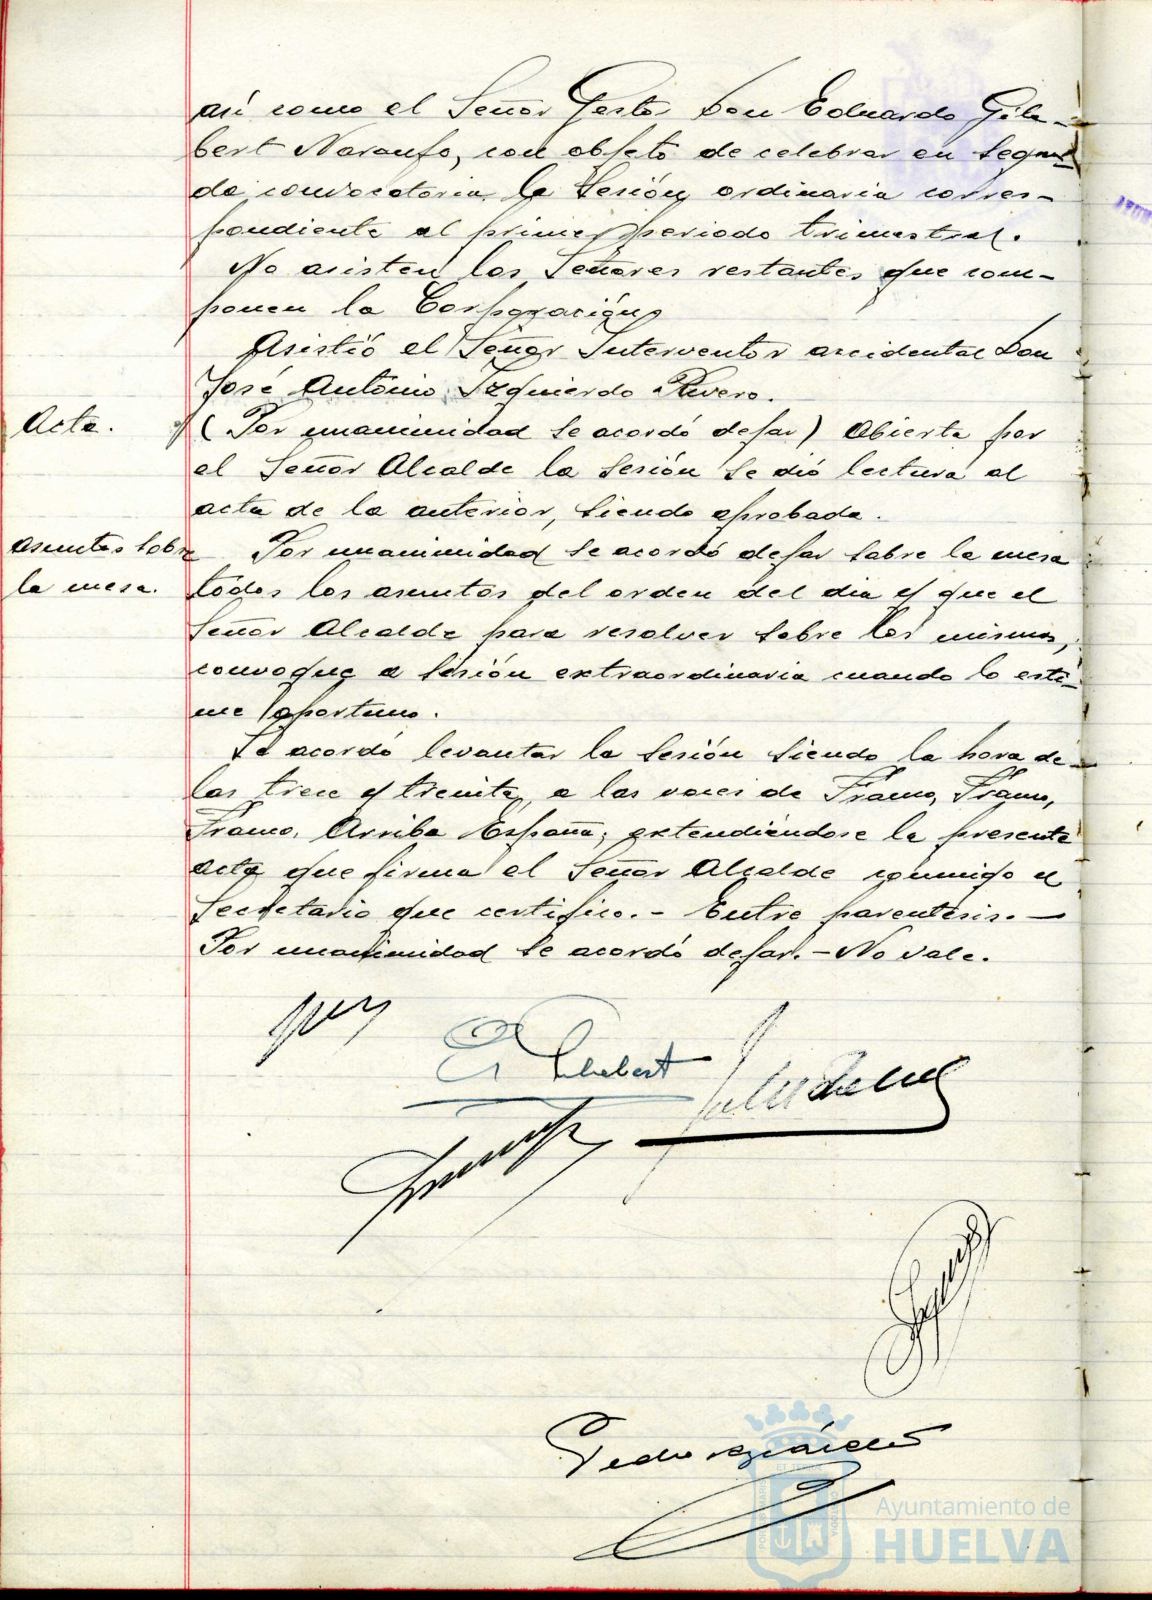 así como el Señor Gestor Don Eduardo Gila-
bert Naranjo, con objeto de celebrar en segun-
da convocatoria, la sesión ordinaria corres-
pondiente al primer periodo trimestral.
No asisten los Señores restantes que com-
ponen la Corporación,
Asistió el Señor Interventor accidental Don
José Antonio Izquierdo Rivero.
Acta.
(Por unanimidad se acordó dejar) Abierta por
el Señor Alcalde la sesión se dió lectura al
acta de la anterior, siendo aprobada.
asuntos sobre
la mesa.
Por unanimidad se acordó dejar sobre la mesa
todos los asuntos del orden del dia y que el
Señor Alcalde para resolver sobre los mismos,
convoque a sesión extraordinaria cuando lo esti-
me oportuno.
Se acordó levantar la sesión siendo la hora de
las trece y treinta, a las voces de Franco, Franco,
Franco, Arriba España; extendiéndose la presente
acta que firma el Señor Alcalde conmigo el
Secretario que certifico.- Entre parentesis.-
Por unanimidad se acordó dejar.- No vale.
Ayuntamiento de
HUELVA